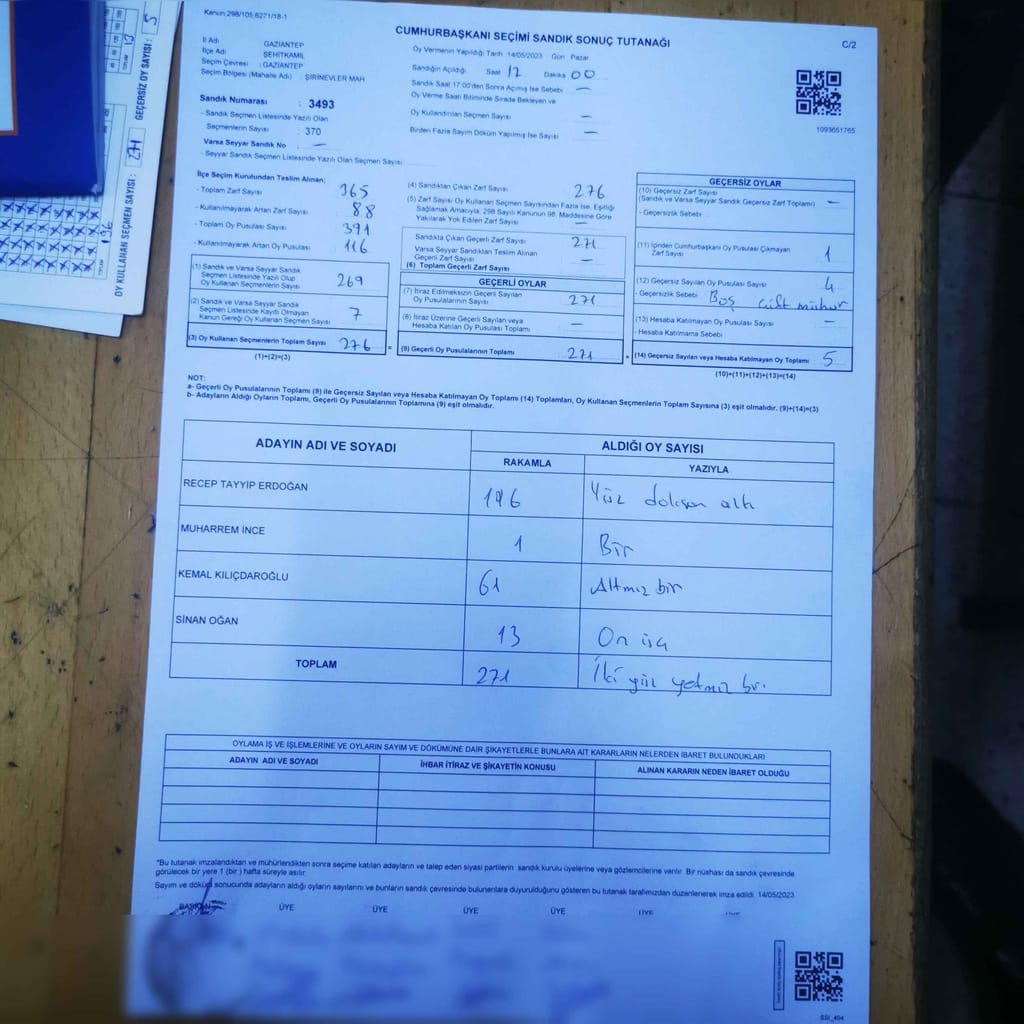 Kanun:298/105:6271/18-1
CUMHURBAŞKANI SEÇİMİ SANDIK SONUÇ TUTANAĞI
C/2
İl Adı GAZİANTEP
İlçe Adı ŞEHİTKAMİL
Seçim Çevresi : GAZİANTEP
Seçim Bölgesi (Mahalle Adı) : ŞİRİNEVLER MAH
Sandık Numarası : 3493
- Sandık Seçmen Listesinde Yazılı Olan
Seçmenlerin Sayısı : 370
Varsa Seyyar Sandık No —
- Seyyar Sandık Seçmen Listesinde Yazılı Olan Seçmen Sayısı
Oy Vermenin Yapıldığı Tarih 14/05/2023 Gün Pazar
Sandığın Açıldığı Saat 17 Dakika 00
Sandık Saat 17:00'den Sonra Açılmış İse Sebebi —
Oy Verme Saati Bitiminde Sırada Bekleyen ve
Oy Kullandırılan Seçmen Sayısı —
Birden Fazla Sayım Döküm Yapılmış İse Sayısı —
1093651765
İlçe Seçim Kurulundan Teslim Alınan;
- Toplam Zarf Sayısı 365
- Kullanılmayarak Artan Zarf Sayısı 88
- Toplam Oy Pusulası Sayısı 391
- Kullanılmayarak Artan Oy Pusulası 116
(1) Sandık ve Varsa Seyyar Sandık
Seçmen Listesinde Yazılı Olup
Oy Kullanan Seçmenlerin Sayısı 269
(2) Sandık ve Varsa Seyyar Sandık
Seçmen Listesinde Kayıtlı Olmayan
Kanun Gereği Oy Kullanan Seçmen Sayısı 7
(3) Oy Kullanan Seçmenlerin Toplam Sayısı 276
(1)+(2)=(3)
=
(4) Sandıktan Çıkan Zarf Sayısı 276
(5) Zarf Sayısı Oy Kullanan Seçmen Sayısından Fazla İse, Eşitliği
Sağlamak Amacıyla, 298 Sayılı Kanunun 98. Maddesine Göre
Yakılarak Yok Edilen Zarf Sayısı —
Sandıkta Çıkan Geçerli Zarf Sayısı 271
Varsa Seyyar Sandıktan Teslim Alınan
Geçerli Zarf Sayısı —
(6) Toplam Geçerli Zarf Sayısı
GEÇERLİ OYLAR
(7) İtiraz Edilmeksizin Geçerli Sayılan
Oy Pusulalarının Sayısı 271
(8) İtiraz Üzerine Geçerli Sayılan veya
Hesaba Katılan Oy Pusulası Toplamı —
(9) Geçerli Oy Pusulalarının Toplamı 271
+
GEÇERSİZ OYLAR
(10) Geçersiz Zarf Sayısı
(Sandık ve Varsa Seyyar Sandık Geçersiz Zarf Toplamı) —
- Geçersizlik Sebebi
(11) İçinden Cumhurbaşkanı Oy Pusulası Çıkmayan
Zarf Sayısı 1
(12) Geçersiz Sayılan Oy Pusulası Sayısı 4
- Geçersizlik Sebebi Boş çift mühür
(13) Hesaba Katılmayan Oy Pusulası Sayısı —
- Hesaba Katılmama Sebebi
(14) Geçersiz Sayılan veya Hesaba Katılmayan Oy Toplamı 5
(10)+(11)+(12)+(13)=(14)
NOT:
a- Geçerli Oy Pusulalarının Toplamı (9) ile Geçersiz Sayılan veya Hesaba Katılmayan Oy Toplamı (14) Toplamları, Oy Kullanan Seçmenlerin Toplam Sayısına (3) eşit olmalıdır. (9)+(14)=(3)
b- Adayların Aldığı Oyların Toplamı, Geçerli Oy Pusulalarının Toplamına (9) eşit olmalıdır.
ADAYIN ADI VE SOYADI ALDIĞI OY SAYISI
RAKAMLA YAZIYLA
RECEP TAYYİP ERDOĞAN 196 Yüz altı
MUHARREM İNCE 1 Bir
KEMAL KILIÇDAROĞLU 61 Altmış bir
SİNAN OĞAN 13 On üç
TOPLAM 271 İki yüz yetmiş bir
OYLAMA İŞ VE İŞLEMLERİNE VE OYLARIN SAYIM VE DÖKÜMÜNE DAİR ŞİKAYETLERLE BUNLARA AİT KARARLARIN NELERDEN İBARET BULUNDUKLARI
ADAYIN ADI VE SOYADI İHBAR İTİRAZ VE ŞİKAYETİN KONUSU ALINAN KARARIN NEDEN İBARET OLDUĞU
*Bu tutanak imzalandıktan ve mühürlendikten sonra seçime katılan adayların ve talep eden siyasi partilerin sandık kurulu üyelerine veya gözlemcilerine verilir. Bir nüshası da sandık çevresinde
görülecek bir yere 1 (bir) hafta süreyle asılır.
Sayım ve döküm sonucunda adayların aldığı oyların sayılarını ve bunların sandık çevresinde bulunanlara duyurulduğunu gösteren bu tutanak tarafımızdan düzenlenerek imza edildi. 14/05/2023
BAŞKAN ÜYE ÜYE ÜYE ÜYE ÜYE ÜYE
SSİ_404
OY KULLANAN SEÇMEN SAYISI : 271 GEÇERSİZ OY SAYISI : 5
TOPLAM 196
TOPLAM 13